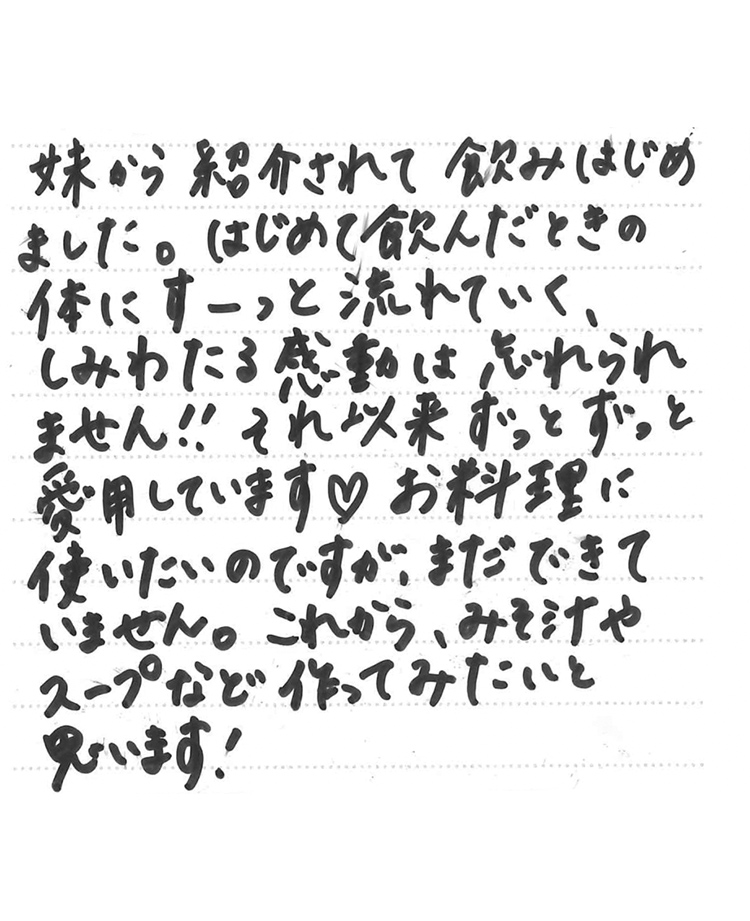 妹から紹介されて飲みはじめ
ました。はじめて飲んだときの
体にすーっと流れていく、
しみわたる感動は忘れられ
ません!!それ以来ずっとずっと
愛用しています♡お料理に
使いたいのですが、まだできて
いません。これから、みそ汁や
スープなど作ってみたいと
思います!